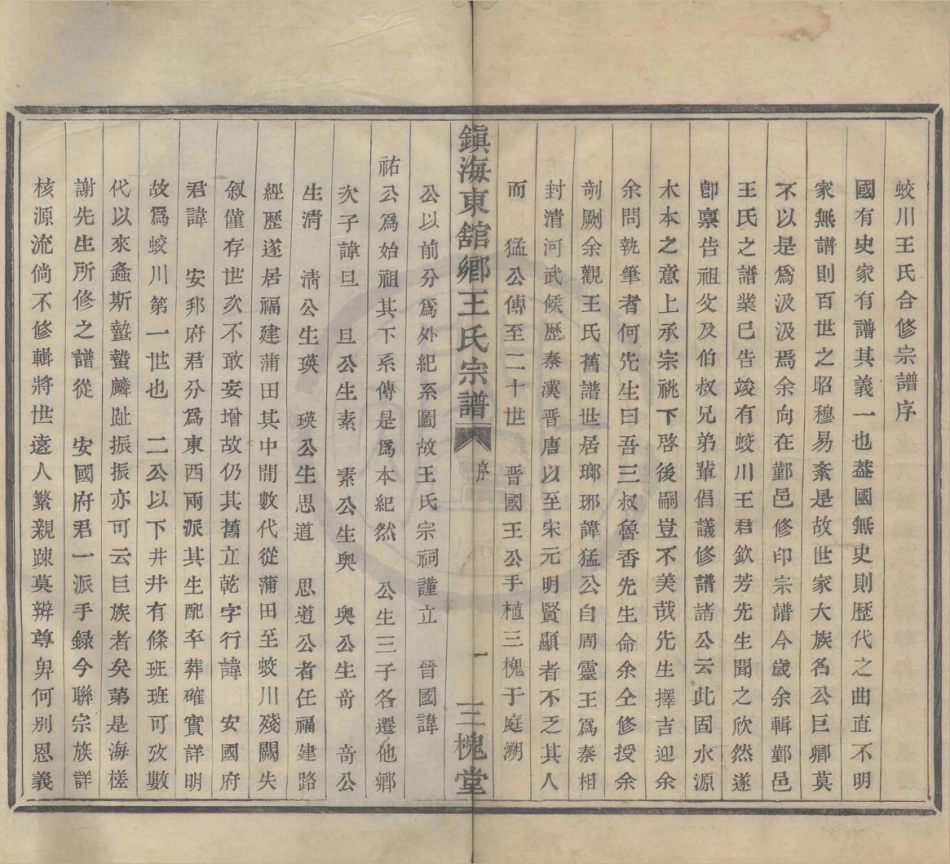 蛟川王氏合修宗譜序
國有史家有譜其義一也葢國無史則歴代之曲直不明
家無譜則百世之昭穆易紊是故世家大族名公巨卿莫
不以是爲汲汲焉余向在鄞邑修印宗譜今歳余輯鄞邑
王氏之譜業已告竣有蛟川王君欽芳先生聞之欣然遂
卽稟告祖父及伯叔兄弟輩倡議修譜諸公云此固水源
木本之意上承宗祧下啓後嗣豈不美哉先生擇吉迎余
余問執筆者何先生曰吾三叔魯香先生命余仝修授余
剞劂余觀王氏舊譜世居瑯琊諱猛公自周靈王爲秦相
封清河武候歴秦漢晉唐以至宋元明賢顯者不乏其人
而　猛公傳至二十世　晋國王公手植三槐于庭溯
鎮海東舘鄉王氏宗譜　序　一　三槐堂
公以前分爲外紀系圖故王氏宗祠謹立　晉國諱
祐公爲始祖其下系傳是爲本紀然　公生三子各遷他鄉
次子諱旦　旦公生素　素公生輿　輿公生竒　竒公
生淸　淸公生瑛　瑛公生思道　思道公者任福建路
經歷遂居福建蒲田其中間數代從蒲田至蛟川殘闕失
叙僅存世次不敢妄增故仍其舊立乾字行諱　安國府
君諱　安邦府君分爲東西兩派其生配卒葬確實詳明
故爲蛟川第一世也　二公以下井井有條班班可攷數
代以來螽斯蟄蟄麟趾振振亦可云巨族者矣第是海槎
謝先生所修之譜從　安國府君一派手録今聯宗族詳
核源流倘不修輯將世遠人繁親踈莫辨尊卑何別恩義